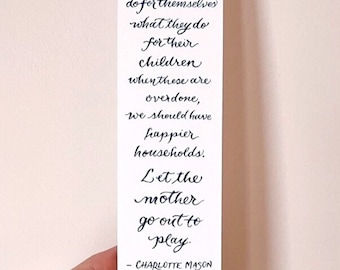 do for themselves
what they do
for their
children
when these are
overdone,
we should have
happier
households.
Let the
mother
go out to
play.
- CHARLOTTE MASON